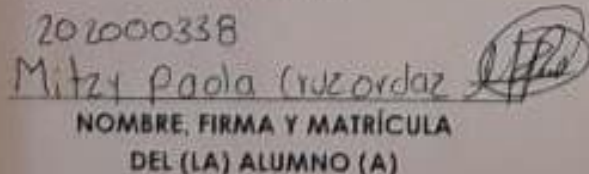 202000338
Mitzy Paola Cruz ordaz
NOMBRE, FIRMA Y MATRÍCULA
DEL (LA) ALUMNO (A)